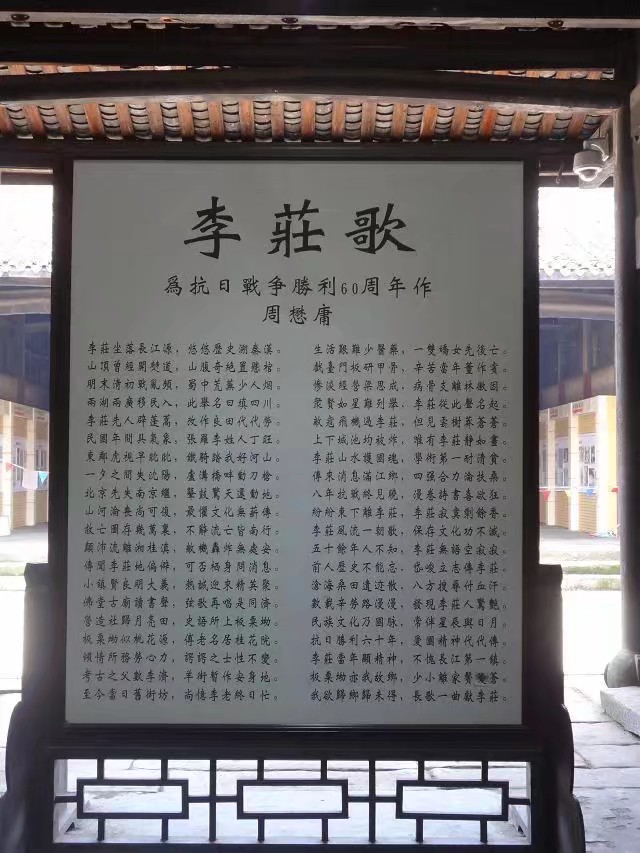 李莊歌
爲抗日戰争勝利60周年作
周懋庸
李莊坐落長江源，悠悠歷史溯秦漢。
山頂曾經開僰道，山腹奇絶置懸棺。
明末清初戰亂頻，蜀中荒蕪少人烟。
兩湖兩廣移民入，此舉名曰填四川。
李莊先人辟蓬蒿，改作良田代代勞。
民國年間具氣象，張羅李姓人丁旺。
東鄰虎視早眈眈，鐵騎踏我好河山。
一夕之間失沈陽，盧溝橋畔動刀槍。
北京先失南京繼，鼙鼓驚天還動地。
山河淪喪尚可復，最懼文化無薪傳。
救亡圖存幾萬裏，不辭流亡皆南行。
顛沛流離湘桂滇，敵機轟炸無處安。
傳聞李莊地偏僻，可否栖身問消息。
小鎮賢良明大義，熱誠迎來精英聚。
佛堂古廟讀書聲，弦歌再唱是同濟。
營造社歸月亮田，史語所上板栗坳。
板栗坳似桃花源，傅老名居桂花院。
傾情所務勞心力，諤諤之士性不變。
考古之父數李濟，羊街暫作安身地。
至今當日舊街坊，尚憶李老終日忙。
生活艱難少醫藥，一雙嬌女先後亡。
戲臺門板研甲骨，辛苦當年董作賓。
慘淡經營梁思成，病骨支離林徽因。
衆賢如星難列舉，李莊從此聲名起。
敵寇飛機過李莊，但見雲樹蒼蒼蒼。
上下城池均被炸，唯有李莊静如畫。
李莊山水護國魂，學術第一耐清貧。
傳來消息滿江鄉，四强合力淪扶桑。
八年抗戰終見曉，漫卷詩書喜欲狂。
紛紛東下離李莊，李莊寂寞剩餘香。
李莊風流一朝歇，保存文化功不滅。
五十餘年人不知，李莊無語空寂寂。
前人歷史不能忘，岱峻立志傳李莊。
滄海桑田遺迹散，八方搜尋付血汗。
數載辛勞路漫漫，發現李莊人驚艷。
民族文化乃國脉，常伴星辰與日月。
抗日勝利六十年，愛國精神代代傳。
李莊當年顯精神，不愧長江第一鎮。
板栗坳亦我故鄉，少小離家鬢蒼。
我欲歸鄉歸未得，長歌一曲獻李莊。